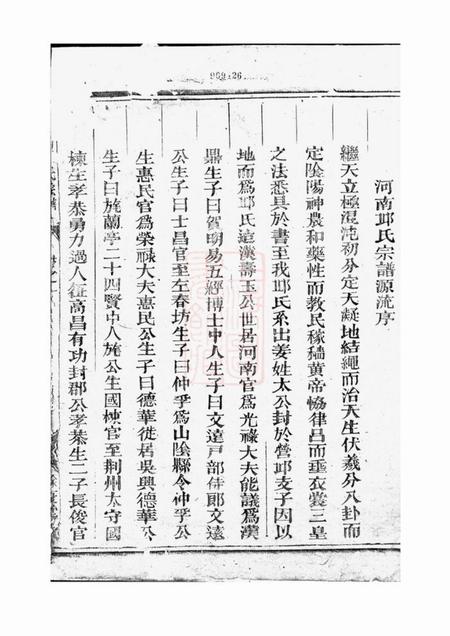 959.26
河南邱氏宗譜源流序
繼天立極混沌初分定天凝地結繩而治天生伏羲分八卦而
定陰陽神農和藥性而教民稼穡黄帝恊律吕而垂衣裳三皇
之法悉具於書至我邱氏系出姜姓太公封於營邱支子因以
地而爲邱氏遠漢壽玉公世居河南官爲光祿大夫能議爲漢
鼎生子曰賀明易五經博士中人生子曰文達戸部侍郎文遠
公生子曰士昌官至左春坊生子曰仲孚爲山陰縣令仲孚公
生惠民官爲榮祿大夫惠民公生子曰德華徙居吳興德華公
生子曰旄蘭亭二十四賢中人旄公生國棟官至荆州太守國
棟生孝恭勇力過人征高昌有功封郡公孝恭生二子長俊官